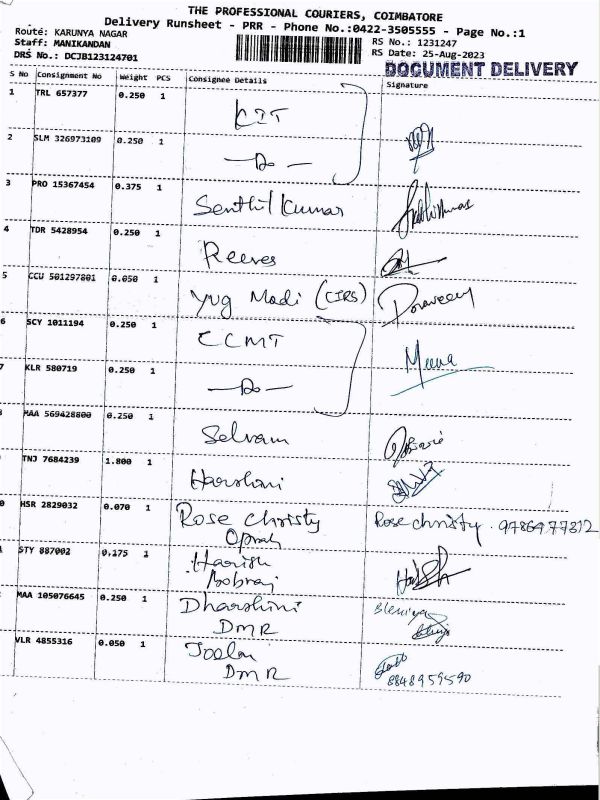 THE PROFESSIONAL COURIERS, COIMBATORE
Delivery Runsheet - PRR - Phone No.:0422-3505555 - Page No.:1
Route: KARUNYA NAGAR
Staff: MANIKANDAN
DRS No.: DCJB123124701
RS No.: 1231247
RS Date: 25-Aug-2023
DOCUMENT DELIVERY
S No Consignment No Weight PCS Consignee Details Signature
1 TRL 657377 0.250 1 KIT
2 SLM 326973109 0.250 1 — Do —
3 PRO 15367454 0.375 1 Senthil Kumar
4 TDR 5428954 0.250 1 Reeves
5 CCU 501297801 0.050 1 Yug Modi (CIRS) Praveen
6 SCY 1011194 0.250 1 CCMT Meena
7 KLR 580719 0.250 1 — Do —
MAA 569428800 0.250 1 Selvam
TNJ 7684239 1.800 1 Harshini
0 HSR 2829032 0.070 1 Rose Christy Rose christy . 9786977312
Oprah
STY 887002 0.175 1 Harish
Bobraj
MAA 105076645 0.250 1 Dharshini
DMR
VLR 4855316 0.050 1
DMR 8848959590